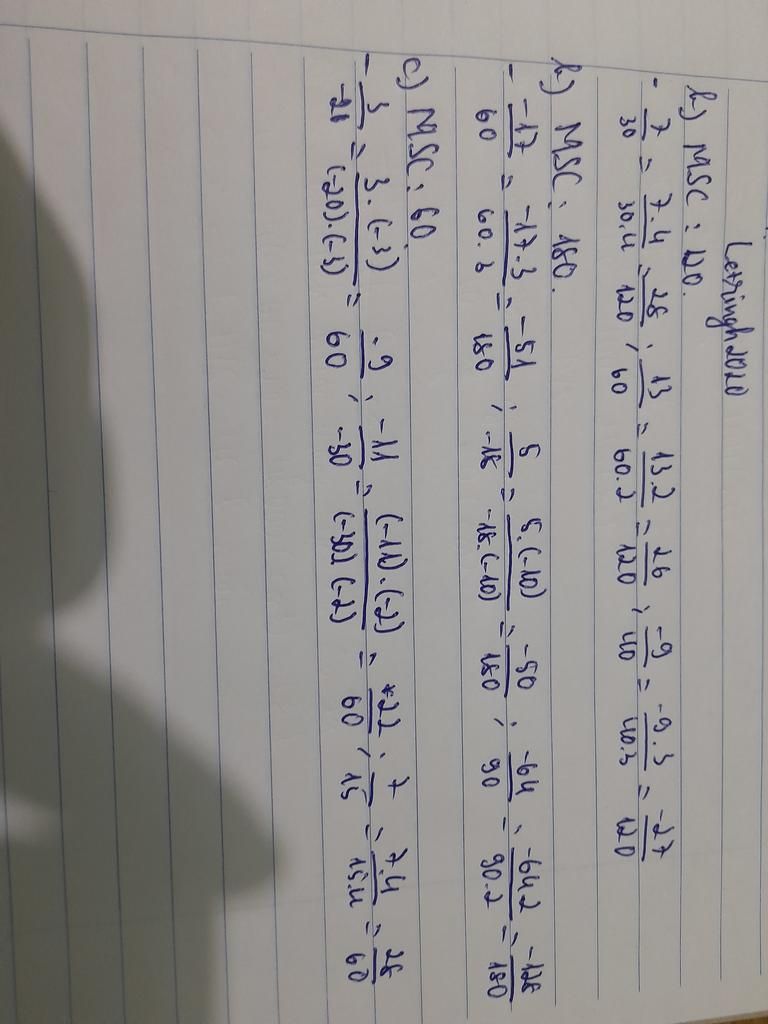 Letringh2020
b) MSC: 120.
- 7/30 = 7.4/30.4 = 28/120 ; 13/60 = 13.2/60.2 = 26/120 ; -9/40 = -9.3/40.3 = -27/120
b) MSC: 180.
- -17/60 = -17.3/60.3 = -51/180 ; 5/-18 = 5.(-10)/-18.(-10) = -50/180 ; -64/90 = -64.2/90.2 = -128/180
c) MSC: 60
- 3/-20 = 3.(-3)/(-20).(-3) = -9/60 ; -11/-30 = (-11).(-2)/(-30)(-2) = 22/60 ; 7/15 = 7.4/15.4 = 28/60